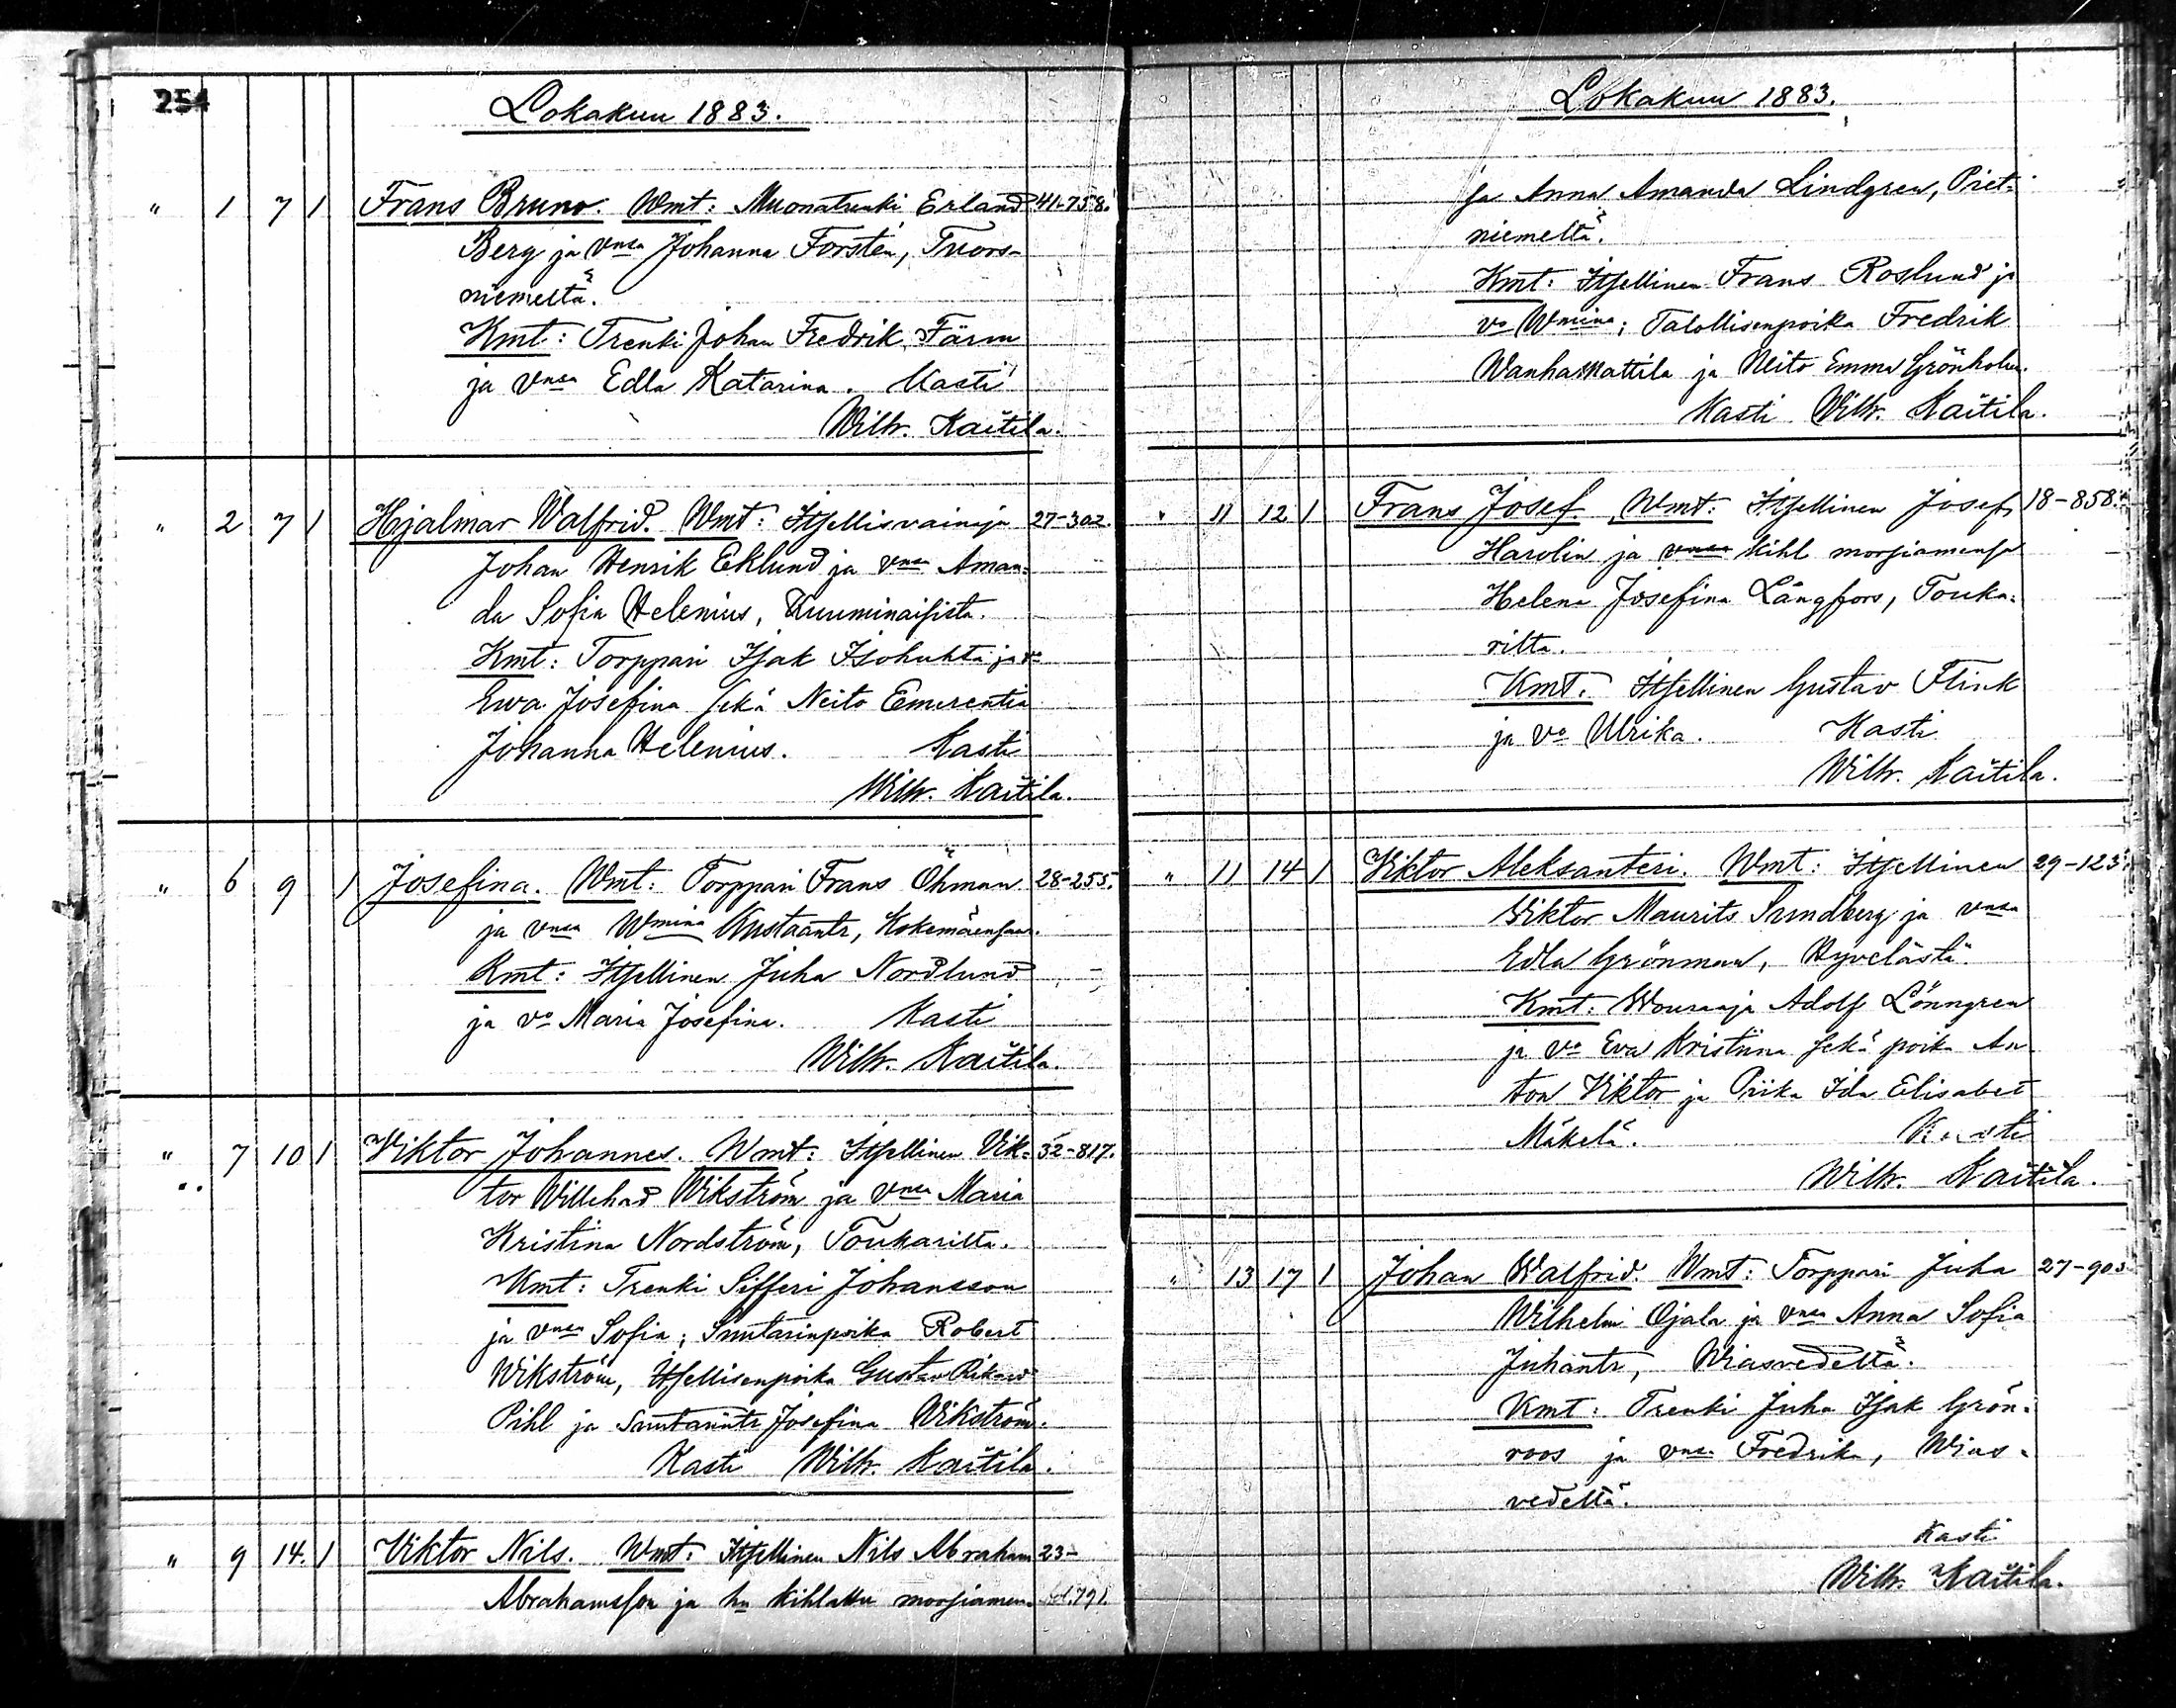 254
Lokakuu 1883.
" 1 7 1 Frans Bruno. Wmt: Muonatrenki Erland 41-758.
Berg ja vnsa Johanna Forstén, Tuors-
niemeltä.
Kmt: Trenki Johan Fredrik Färm
ja vnsa Edla Katarina. Kasti
Wilh. Kaitila.
" 2 7 1 Hjalmar Walfrid. Wmt: Itsellisvainaja 27-302.
Johan Henrik Eklund ja vnsa Aman-
da Sofia Helenius, Kuuminaisista.
Kmt: Torppari Isak Isohuhta ja vo
Ewa Josefina sekä Neito Emerentia
Johanna Helenius. Kasti
Wilh. Kaitila.
" 6 9 1 Josefina. Wmt: Torppari Frans Öhman 28-255.
ja vnsa Wmina Kustaantr, Kokemäensaar.
Kmt: Itsellinen Juha Nordlund
ja vo Maria Josefina. Kasti
Wilh. Kaitila.
" 7 10 1 Viktor Johannes. Wmt: Itsellinen Vik- 32-817.
tor Willehad Wikström ja vnsa Maria
Kristina Nordström, Toukarilta.
Kmt: Trenki Sifferi Johansson
ja vnsa Sofia; Suutarinpoika Robert
Wikström, Itsellisenpoika Gustav Rikard
Pihl ja Suutarintr Josefina Wikström.
Kasti Wilh. Kaitila.
" 9 14. 1 Viktor Nils. Wmt: Itsellinen Nils Abraham 23-
Abrahamsson ja hn kihlattu morsiamen- 791.
Lokakuu 1883.
sa Anna Amanda Lindgren, Piet-
niemeltä.
Kmt: Itsellinen Frans Roslund ja
vo Wmina; Talollisenpoika Fredrik
Wanhamattila ja Neito Emma Grönholm.
Kasti Wilh. Kaitila.
" 11 12 1 Frans Josef. Wmt: Itsellinen Josef 18-858.
Harolin ja vnsa kihl morsiamensa
Helena Josefina Långfors, Touka-
rilta.
Kmt. Itsellinen Gustav Flink
ja vo Ulrika. Kasti
Wilh. Kaitila.
" 11 14 1 Viktor Aleksanteri. Wmt: Itsellinen 29-123.
Viktor Maurits Sundberg ja vnsa
Edla Grönman, Hyvelästä.
Kmt: Wouraaja Adolf Lönngren
ja vo Eva Kristiina sekä poika An
ton Viktor ja Piika Ida Elisabet
Mäkelä. Kasti
Wilh. Kaitila.
" 13 17 1 Johan Walfrid. Wmt: Torppari Juha 27-903.
Wilhelm Ojala ja vnsa Anna Sofia
Juhantr, Wiasvedeltä.
Kmt: Trenki Juha Isak Grön-
roos ja vnsa Fredrika, Wias-
vedeltä.
Kasti
Wilh. Kaitila.